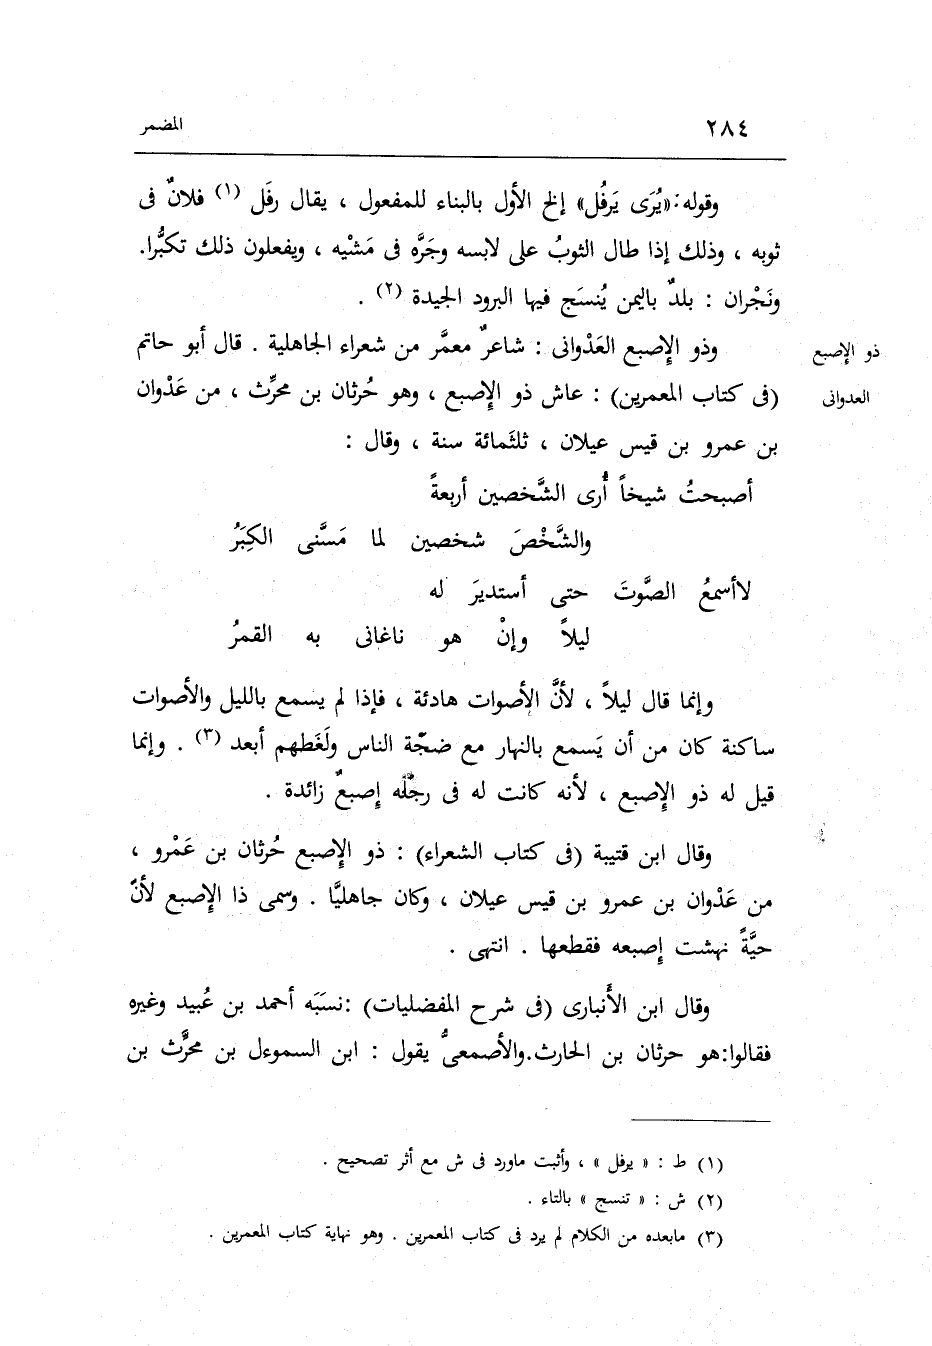 ٢٨٤
المضمر
وقوله: «يُرَى يَرفُل» إلخ الأول بالبناء للمفعول ، يقال رفَل (١) فلانٌ فى
ثوبه ، وذلك إذا طال الثوبُ على لابسه وجَرَّه فى مَشْيه ، ويفعلون ذلك تكبُّرا.
ونَجْران : بلدٌ باليمن يُنسَج فيها البرود الجيدة (٢) .
وذو الإصبع العَدْوانى : شاعرٌ معمَّر من شعراء الجاهلية . قال أبو حاتم
ذو الإصبع
(فى كتاب المعمرين) : عاش ذو الإصبع ، وهو حُرثان بن محرِّث ، من عَدْوان
العدوانى
بن عمرو بن قيس عيلان ، ثلثَمائة سنة ، وقال :
أصبحتُ شيخاً أُرى الشَّخصين أربعةً
والشَّخْصَ شخصين لما مَسَّنى الكِبَرُ
لاأسمعُ الصَّوتَ حتى أستديرَ له
ليلاً وإنْ هو ناغانى به القمرُ
وإنما قال ليلاً ، لأنَّ الأصوات هادئة ، فإذا لم يسمع بالليل والأصوات
ساكنة كان من أن يَسمع بالنهار مع ضجّة الناس ولَغَطهم أبعد (٣) . وإنما
قيل له ذو الإصبع ، لأنه كانت له فى رجْله إصبعٌ زائدة .
وقال ابن قتيبة (فى كتاب الشعراء) : ذو الإصبع حُرثان بن عَمْرو ،
من عَدْوان بن عمرو بن قيس عيلان ، وكان جاهليًّا . وسمى ذا الإصبع لأنّ
حيَّةً نهشت إصبعه فقطعها . انتهى .
وقال ابن الأَنبارى (فى شرح المفضليات) :نسَبَه أحمد بن عُبيد وغيره
فقالوا:هو حرثان بن الحارث.والأصمعىُّ يقول : ابن السموءل بن محرَّث بن
(١) ط : « يرفل » ، وأثبت ماورد فى ش مع أثر تصحيح .
(٢) ش : « تنسج » بالتاء .
(٣) مابعده من الكلام لم يرد فى كتاب المعمرين . وهو نهاية كتاب المعمرين .